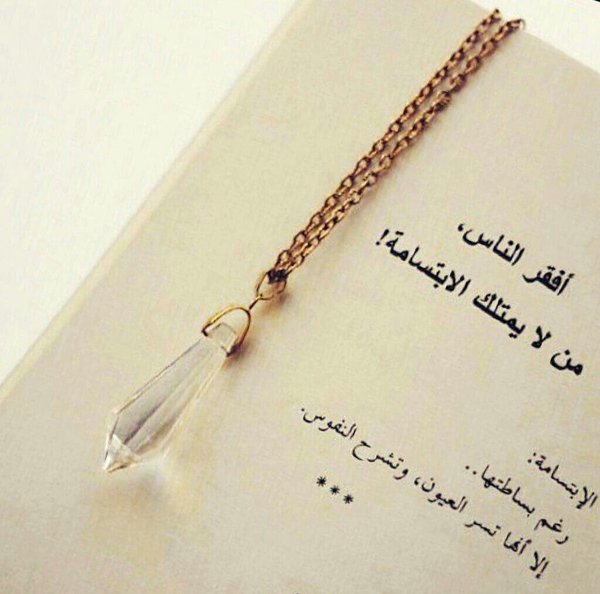 أفقر الناس،
من لا يمتلك الابتسامة!
الإبتسامة:
رغم بساطتها..
إلا أنها تسر العيون، وتشرح النفوس.
***